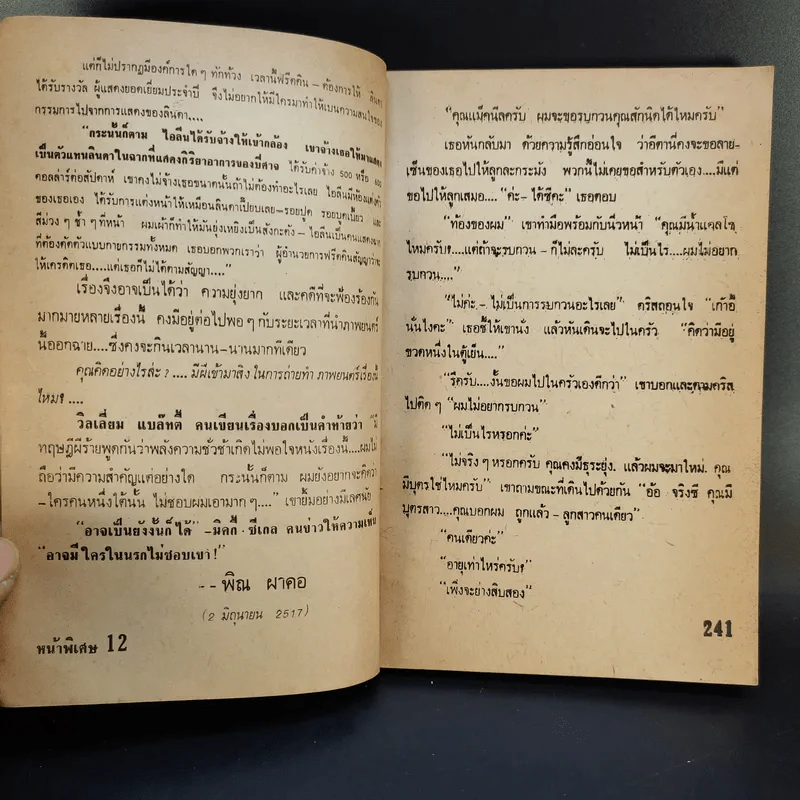 แต่ก็ไม่ปรากฏมีองค์การใด ๆ ทักท้วง เวลานี้ฟรีดคิน – ต้องการให้ ลินดา
ได้รับรางวัล ผู้แสดงยอดเยี่ยมประจำปี จึงไม่อยากให้มีใครมาทำให้เบนความสนใจของ
กรรมการไปจากการแสดงของลินดา....
“กระนั้นก็ตาม ไอลีนได้รับจ้างให้เข้ากล้อง เขาจ้างเธอให้มาแสดง
เป็นตัวแทนลินดาในฉากที่แสดงกิริยาอาการของปีศาจ ได้รับค่าจ้าง 500 หรือ 600
ดอลล่าร์ต่อสัปดาห์ เขาคงไม่จ้างเธอขนาดนั้นถ้าไม่ต้องทำอะไรเลย ไอลีนมีห้องแต่งตัว
ของเธอเอง ได้รับการแต่งหน้าให้เหมือนลินดาเปี๊ยบเลย–รอยปูด รอยบุคเบี้ยว และ
สีม่วง ๆ ช้ำ ๆ ที่หน้า ผมเผ้าก็ทำให้มันยุ่งเหยิงเป็นสังกะตัง – ไอลีนเป็นคนแสดงฉาก
ที่ต้องดัดตัวแบบกายกรรมทั้งหมด เธอบอกพวกเราว่า ผู้อำนวยการฟรีดคินสัญญาว่าจะ
ให้เครดิตเธอ....แต่เธอก็ไม่ได้ตามสัญญา....”
เรื่องจึงอาจเป็นได้ว่า ความยุ่งยาก และคดีที่จะฟ้องร้องกัน
มากมายหลายเรื่องนี้ คงมีอยู่ต่อไปพอ ๆ กับระยะเวลาที่นำภาพยนตร์
นี้ออกฉาย....ซึ่งคงจะกินเวลานาน–นานมากทีเดียว
คุณคิดอย่างไรล่ะ ? .... มีผีเข้ามาสิง ในการถ่ายทำ ภาพยนตร์เรื่องนี้
ไหม? ....
วิลเลี่ยม แบล๊ทตี้ คนเขียนเรื่องบอกเป็นคำท้ายว่า “มี
ทฤษฎีผีร้ายพูดกันว่าพลังความชั่วช้าเกิดไม่พอใจหนังเรื่องนี้....ผมไม่
ถือว่ามีความสำคัญแต่อย่างใด กระนั้นก็ตาม ผมยังอยากจะคิดว่า
–ใครคนหนึ่งใต้นั้น ไม่ชอบผมเอามาก ๆ....” เขายิ้มอย่างมีเลศนัย
“อาจเป็นยังงั้นก็ได้” –มิคกี้ ซีเกล คนข่าวให้ความเห็น
“อาจมีใครในนรกไม่ชอบเขา !”
-- พิณ ผาคอ
(2 มิถุนายน 2517)
หน้าพิเศษ 12
“คุณแม็คนีลครับ ผมจะขอรบกวนคุณสักนิดได้ไหมครับ”
เธอหันกลับมา ด้วยความรู้สึกอ่อนใจ ว่าอีตานี่คงจะขอลาย–
เซ็นของเธอไปให้ลูกละกระมัง พวกนี้ไม่เคยขอสำหรับตัวเอง....มีแต่
ขอไปให้ลูกเสมอ.... “ค่ะ– ได้ซีคะ” เธอตอบ
“ท้องของผม” เขาทำมือพร้อมกับนิ่วหน้า “คุณมีน้ำแคลโซ
ไหมครับ?....แต่ถ้าจะรบกวน –ก็ไม่ละครับ ไม่เป็นไร....ผมไม่อยาก
รบกวน....”
“ไม่ค่ะ – ไม่เป็นการรบกวนอะไรเลย” คริสถอนใจ “เก้าอี้
นั่นไงคะ” เธอชี้ให้เขานั่ง แล้วหันเดินจะไปในครัว “คิดว่ามีอยู่
ขวดหนึ่งในตู้เย็น....”
“รึครับ....งั้นขอผมไปในครัวเองดีกว่า” เขาบอกและตามคริส
ไปติด ๆ “ผมไม่อยากรบกวน”
“ไม่เป็นไรหรอกค่ะ”
“ไม่จริง ๆ หรอกครับ คุณคงมีธุระยุ่ง. แล้วผมจะมาใหม่. คุณ
มีบุตรใช่ไหมครับ” เขาถามขณะที่เดินไปด้วยกัน “อ้อ จริงซี คุณมี
บุตรสาว....คุณบอกผม ถูกแล้ว – ลูกสาวคนเดียว”
“คนเดียวค่ะ”
“อายุเท่าไหร่ครับ?”
“เพิ่งจะย่างสิบสอง”
241